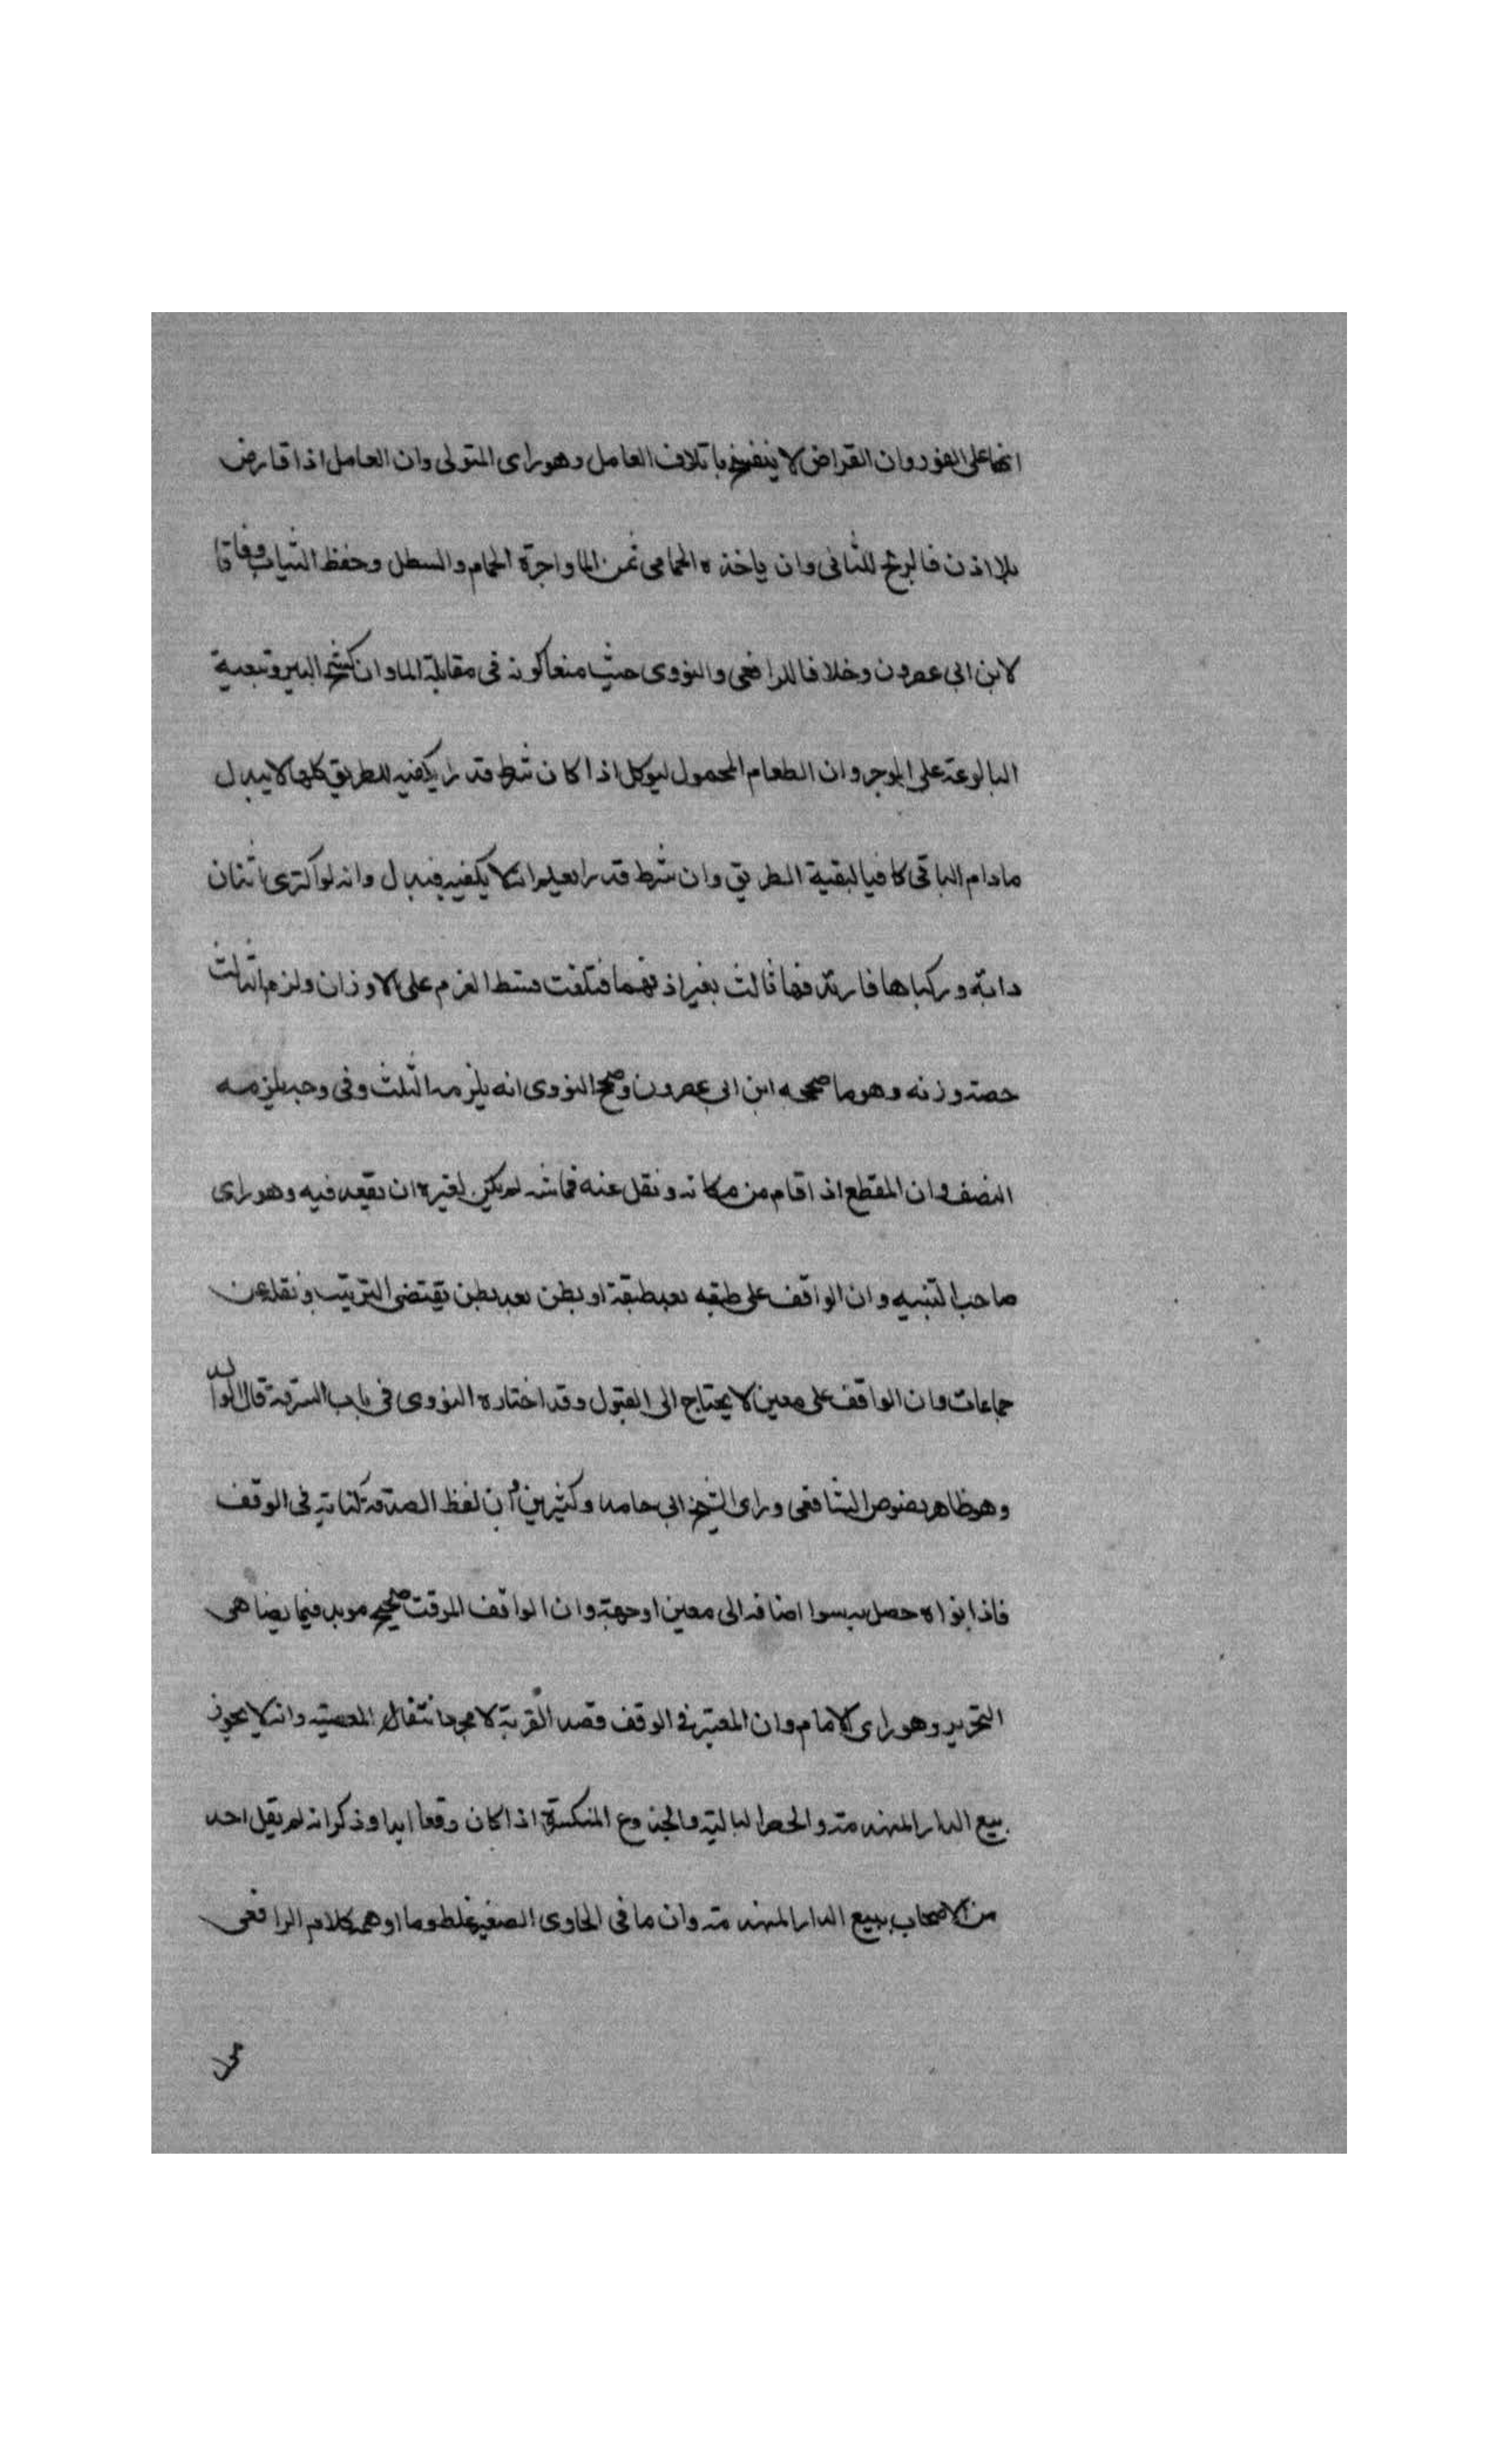 انها على الفور وان القراض لا ينفسخ باتلاف العامل وهو راى المتولى وان العامل اذا قارض
بلا اذن فالربح للثانى وان ياخذه الحمامى ثمن الما واجرة الحمام والسطل وحفظ الثياب وفاقا
لابن ابى عصرون وخلافا للرافعى والنووى حيث منعا كونه فى مقابلة الما وان كسح البير وتنقية
البالوعة على الموجر وان الطعام المحمول ليوكل اذا كان شرط قدرا يكفيه للطريق كلها لا يبدل
مادام الباقى كافيا لبقية الطريق وان شرط قدرا يعلم انه لا يكفيه فيبدل وانه لو اكترى اثنان
دابة وركباها فارتدفها ثالث بغير اذنهما فتلفت قسط الغرم على الاوزان ولزم الثالث
حصة وزنه وهو ما صححه ابن ابى عصرون وصحح النووى انه يلزمه الثلث وفى وجه يلزمه
النصف وان المقطع اذا قام من مكانه ونقل عنه قماشه لم يكن لغيره ان يقعد فيه وهو راى
صاحب التنبيه وان الواقف على طبقه بعد طبقة او بطن بعد بطن يقتضى الترتيب ونقله عن
جماعات وان الواقف على معين لا يحتاج الى القبول وقد اختاره النووى فى باب السرقة قال الوالد
وهو ظاهر نصوص الشافعى وراى الشيخ ابى حامد وكثيرين وان لفظ الصدقة كناية فى الوقف
فاذا نواه حصل به سوا اضافه الى معين او جهة وان الواقف الموقت صحيح موبد فيما يضاهى
التحرير وهو راى الامام وان المعتبر فى الوقف قصد القربة لا مجرد انتفا المعصية وانه لا يجوز
بيع الدار المنهدمة والحصر البالية والجذوع المنكسرة اذا كان وقعا ابدا وذكر انه لم يقل احد
من الاصحاب ببيع الدار المنهدمة وان ما فى الحاوى الصغير غلط وما اوهمه كلام الرافعى